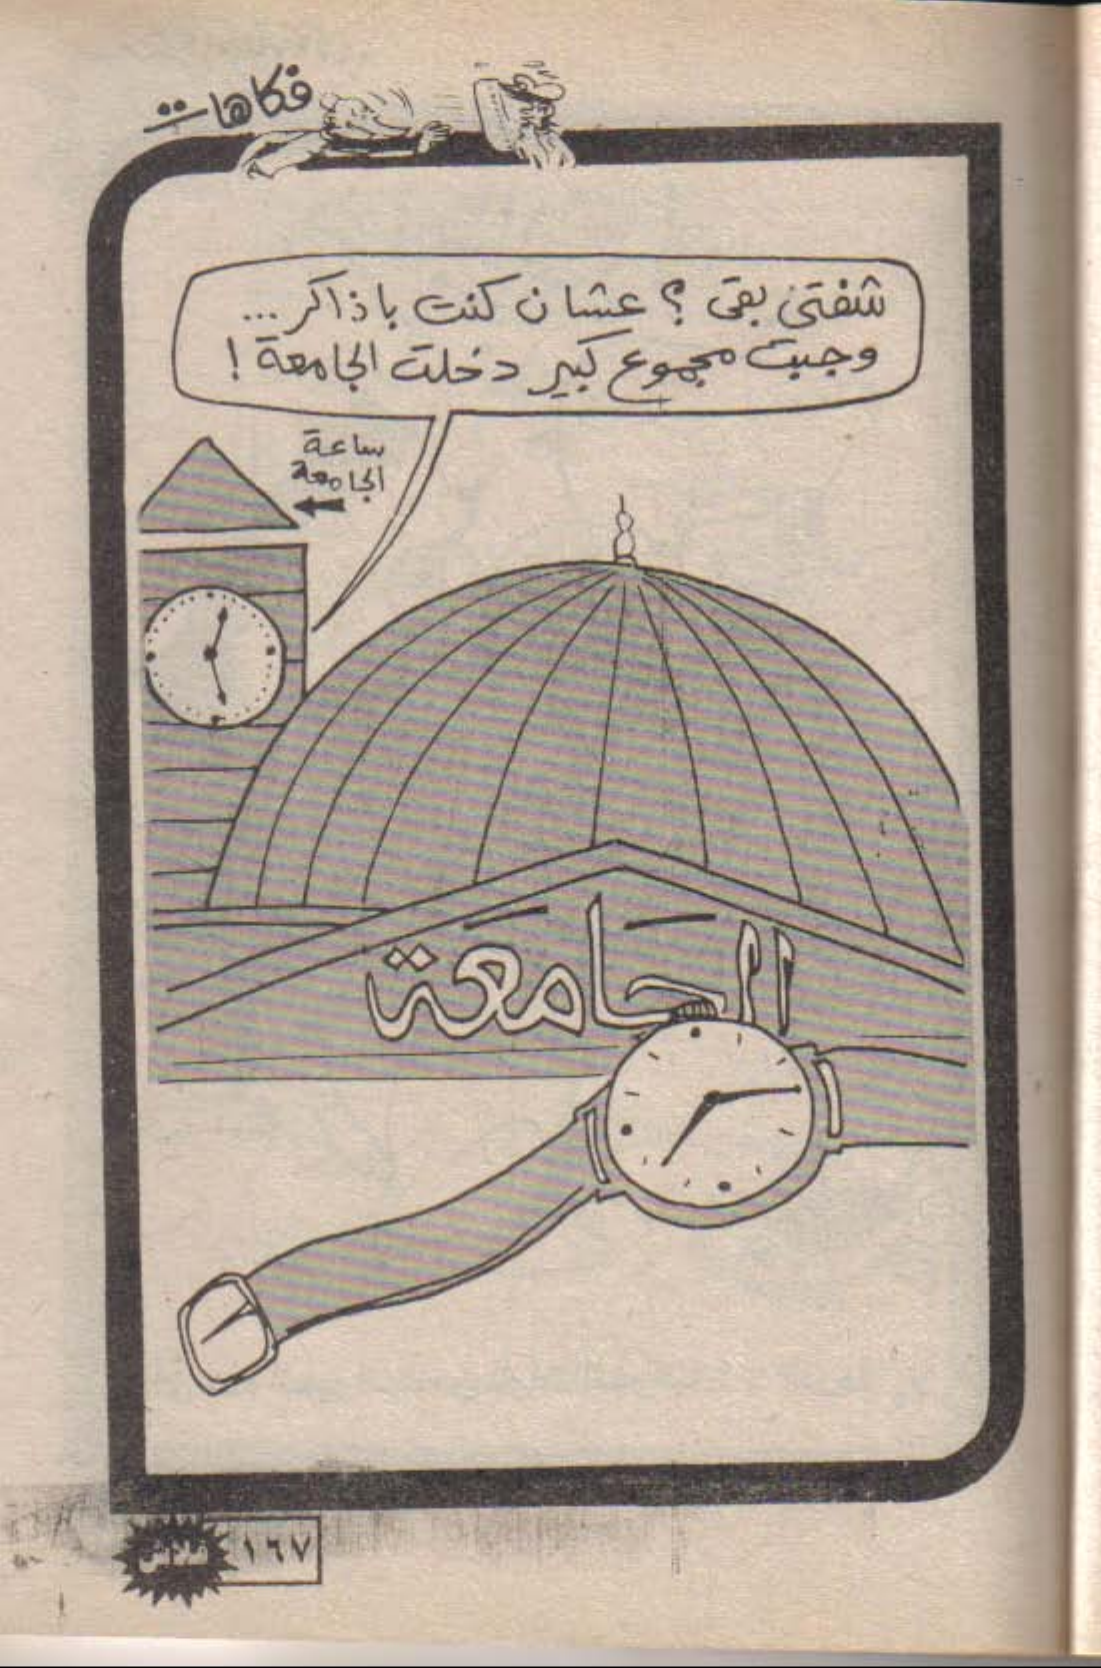 فكاهات
شفتى بقى ؟ عشان كنت باذاكر ...
وجبت مجموع كبير دخلت الجامعة !
ساعة
الجامعة
الجامعة
١٦٧
فلاش